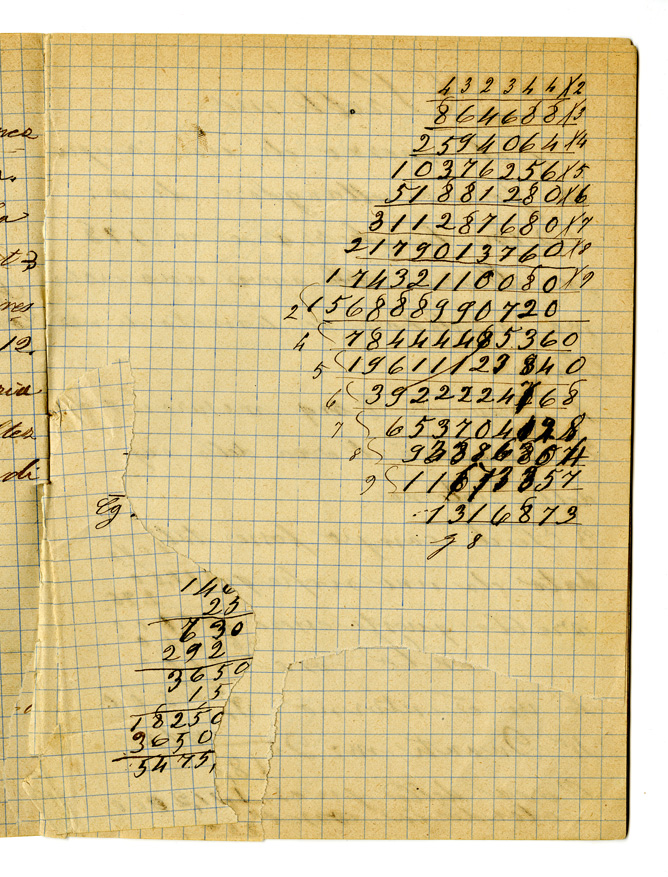 12.
di
432344X2
864688X3
2594064X4
10376256X5
51881280X6
311287680X7
2179013760X8
17432110080X9
2(156888990720
4(78444485360
5(19611123840
6(3922224768
7(653704128
8(93386304
9(11673357
1316873
g 8
146
25
730
292
3650
15
18250
3650
5475,